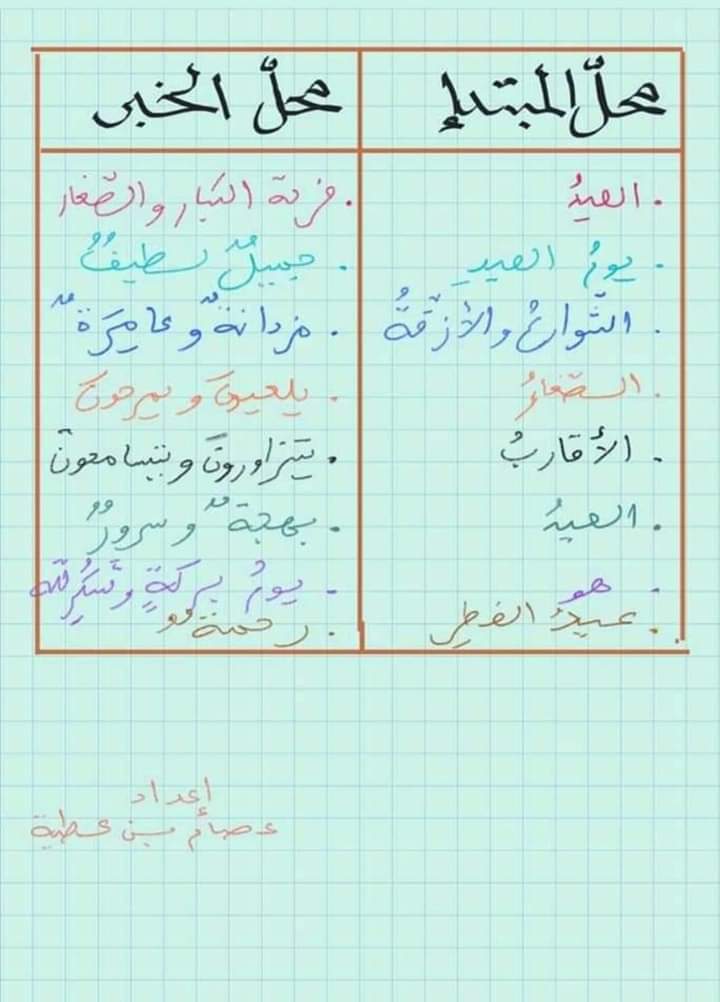 محلّ المبتدإ
محلّ الخبر
. العيدُ
. فرحة الكبار والصّغار
. يومُ العيدِ
. جميلٌ لطيفٌ
. الشّوارعُ والأزقّةُ
. مزدانةٌ وعامِرَةٌ
. الصّغارُ
. يلعبونَ ويمرحونَ
. الأقاربُ
. يتزاورونَ ويتسامحونَ
. العيدُ
. بهجةٌ وسرورٌ
. هو
. يومُ بركةٍ وشكرٍ للّه
. عيدُ الفطرِ
. رحمةٌ
إعداد
عصام بن عطية